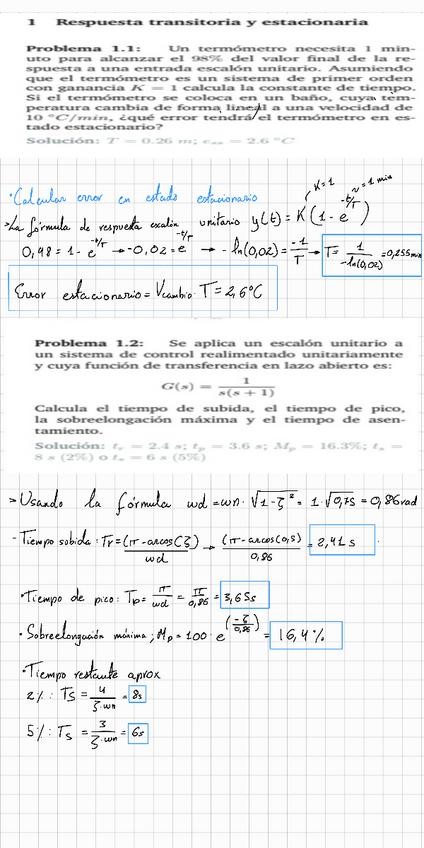 1 Respuesta transitoria y estacionaria
Problema 1.1: Un termómetro necesita 1 min-
uto para alcanzar el 98% del valor final de la re-
spuesta a una entrada escalón unitario. Asumiendo
que el termómetro es un sistema de primer orden
con ganancia K = 1 calcula la constante de tiempo.
Si el termómetro se coloca en un baño, cuya tem-
peratura cambia de forma lineal a una velocidad de
10 °C/min, ¿qué error tendrá el termómetro en es-
tado estacionario?
Solución: T = 0.26 m; e_ss = 2.6 °C
K=1 ~ = 1 min
·Calcular error en estado estacionario
>La fórmula de respuesta escalón unitario y(t) = K (1 - e^{-t/T})
0,98 = 1 - e^{-t/T} → -0,02 = e^{-t/T} → - ln(0,02) = -1/T → T = 1/-ln(0,02) = 0,255 min
Error estacionario = Vcambio · T = 2,6°C
Problema 1.2: Se aplica un escalón unitario a
un sistema de control realimentado unitariamente
y cuya función de transferencia en lazo abierto es:
G(s) = 1/s(s + 1)
Calcula el tiempo de subida, el tiempo de pico,
la sobreelongación máxima y el tiempo de asen-
tamiento.
Solución: t_r = 2.4 s; t_p = 3.6 s; M_p = 16.3%; t_s =
8 s (2%) o t_s = 6 s (5%)
> Usando la fórmula wd = wn · √1-ζ² = 1·√0,75 = 0,86rad
- Tiempo subida : Tr = (π - arcos(ζ)/wd → (π - arcos(0,5)/0,86 = 2,41 s
·Tiempo de pico: Tp = π/wd = π/0,86 = 3,65s
· Sobreelongación máxima ; Mp = 100 · e^(-ζ/0,86) = 16,4%
·Tiempo restante aprox
2% : Ts = 4/ζ·wn = 8s
5% : Ts = 3/ζ·wn = 6s